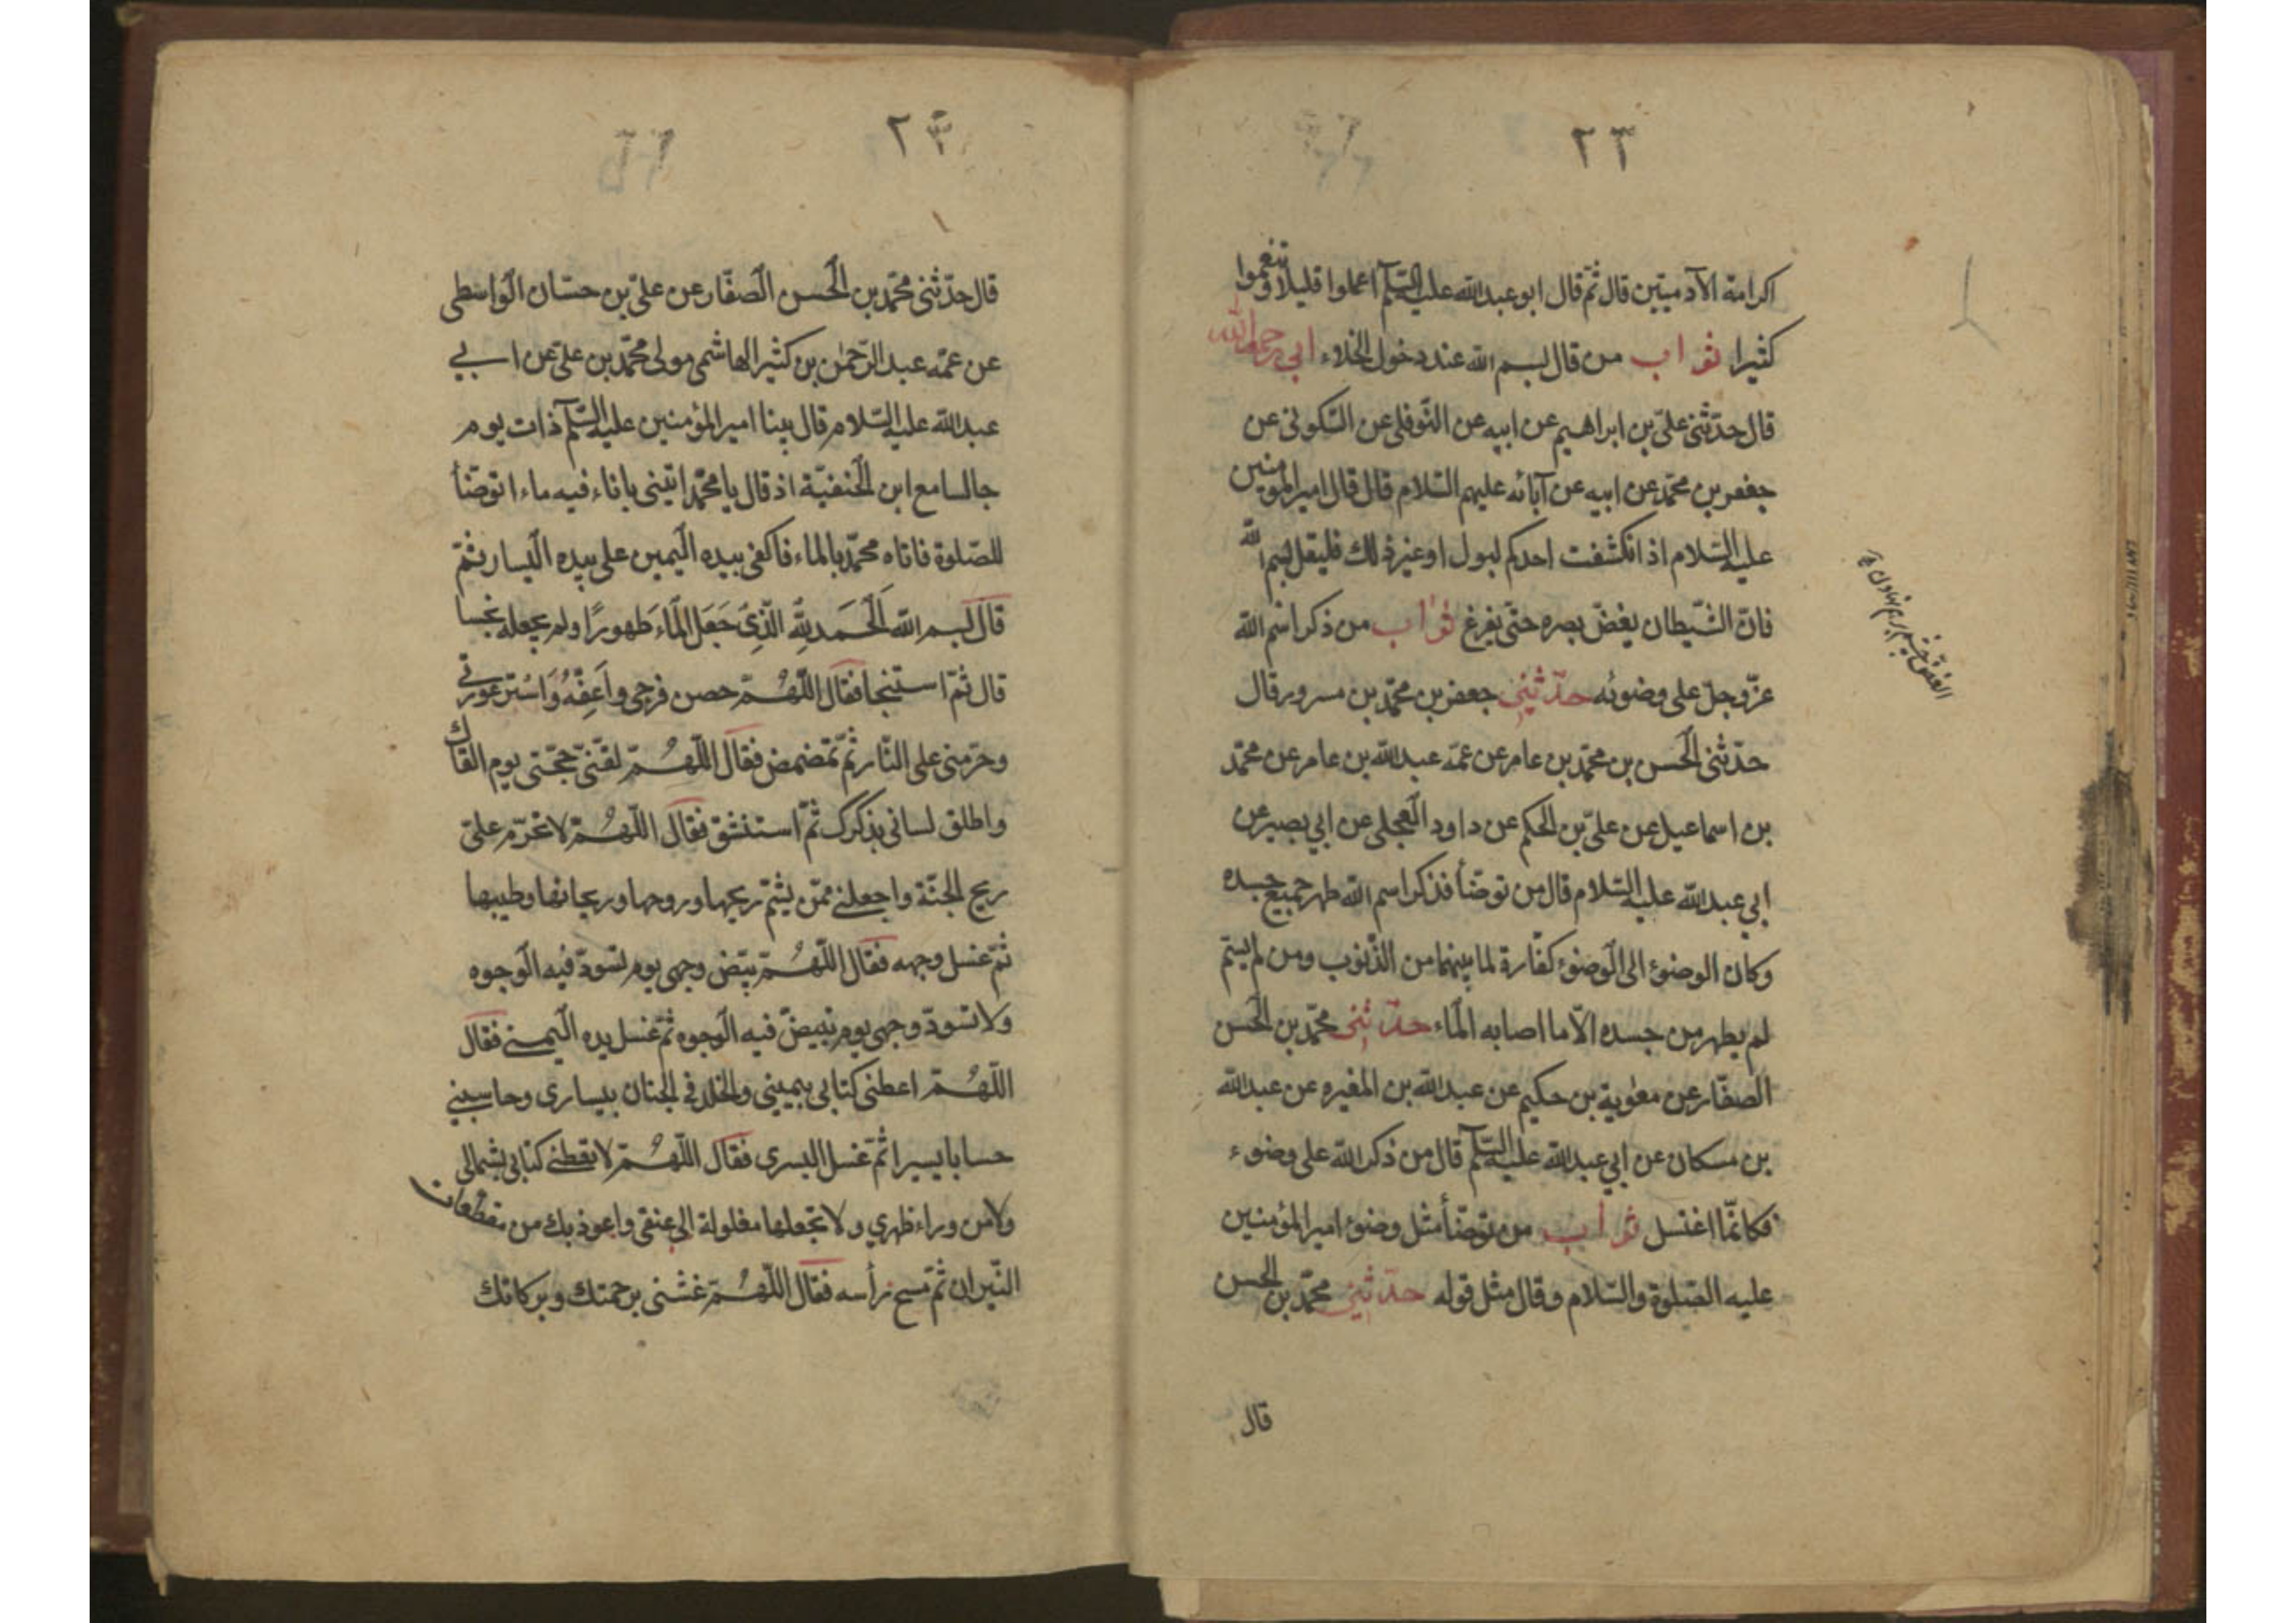 ٢٣
اكرامة الآدميتين قال ثم قال ابو عبد الله عليه السلم اعملوا قليلا وتنعموا
كثيرا ثواب من قال بسم الله عند دخول الخلاء ابي رحمه الله
قال حدّثني علىّ بن ابراهيم عن ابيه عن النّوفلى عن السّكونى عن
جعفر بن محمّد عن ابيه عن آبائه عليهم السّلام قال قال امير المؤمنين
عليه السّلام اذ انكشفت احدكم لبول او غير ذلك فليقل بسم الله
فانّ الشّيطان يغضّ بصره حتّى يفرغ ثواب من ذكر اسم الله
عزّ وجلّ على وضوئه حدّثنى جعفر بن محمّد بن مسرور قال
حدّثنى الحسن بن محمّد بن عامر عن عمّه عبد الله بن عامر عن محمّد
بن اسماعيل عن علىّ بن الحكم عن داود العجلى عن ابي بصير عن
ابي عبد الله عليه السّلام قال من توضّأ فذكر اسم الله طهر جميع جسده
وكان الوضوء الى الوضوء كفّارة لما بينهما من الذّنوب ومن لم يسمّ
لم يطهر من جسده الّا ما اصابه الماء حدّثنى محمّد بن الحسن
الصفّار عن معوية بن حكيم عن عبد الله بن المغيره عن عبد الله
بن مسكان عن ابي عبد الله عليه السلم قال من ذكر الله على وضوء
فكانّما اغتسل ثواب من توضّأ مثل وضوء امير المؤمنين
عليه الصّلوة والسّلام وقال مثل قوله حدّثنى محمّد بن الحسن
قال
٢٣
قال حدّثنى محمّد بن الحسن الصفّار عن علىّ بن حسّان الواسطى
عن عمّه عبد الرّحمن بن كثير الهاشمى مولى محمّد بن علىّ عن ابي
عبد الله عليه السّلام قال بينا امير المؤمنين عليه السلم ذات يوم
جالسا مع ابن الحنفيّة اذ قال يا محمّد ائتينى باناء فيه ماء اتوضّأ
للصّلوة فاتاه محمّد بالماء فاكفى بيده اليمين على بيده اليسار ثمّ
قال بسم الله الحَمد لِلّه الّذِى جَعَل المآء طَهورًا ولم يجعله نجسا
قال ثمّ استنجا فقال اللّهُمّ حصن فرجى واَعِفّهُ وَاسْتر عورتى
وحرّمنى على النّار ثمّ تمضمض فقال اللّهُمّ لقّنّى حجّتى يوم القاك
واطلق لسانى بذكرك ثمّ استنشق فقال اللّهُمّ لا تحرّم علىّ
ريح الجنّة واجعلنى ممّن يشمّ ريحها وروحها وريحانها وطيبها
ثمّ غسل وجهه فقال اللّهُمّ بيّض وجهى يوم تسودّ فيه الوجوه
ولا تسودّ وجهى يوم تبيضّ فيه الوجوه ثمّ غسل يده اليمنى فقال
اللّهُمّ اعطنى كتابى بيمينى والخلد فى الجنان بيسارى وحاسبنى
حسابا يسيرا ثمّ غسل اليسرى فقال اللّهُمّ لا تعطنى كتابى بشمالى
ولا من وراء ظهري ولا تجعلها مغلولة الى عنقى واعوذ بك من مقطعات
النّيران ثمّ مسح رأسه فقال اللّهُمّ غشّنى برحمتك وبركاتك